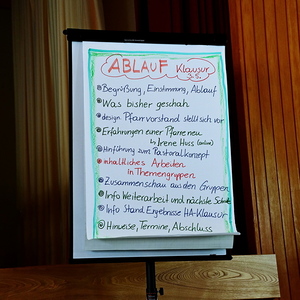 ABLAUF Klausur
5.5.
Begrüßung, Einstimmung, Ablauf
Was bisher geschah
design. Pfarrvorstand stellt sich vor
Erfahrungen einer Pfarre neu
by Irene Huss (online)
Hinführung zum Pastoralkonzept
inhaltliches Arbeiten
in Themengruppen
Zusammenschau aus den Gruppen
Info Weiterarbeit und nächste
Info Stand Ergebnisse HA-Klausur
Hinweise, Termine, Abschluss